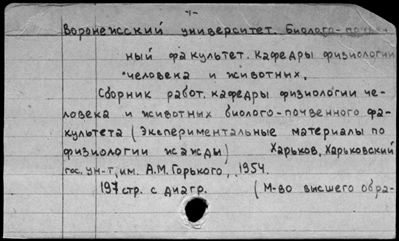 Воронежсский университет. Биолого-почвен
ный факультет. Кафедры физиологии
человека и животных.
Сборник работ. кафедры физиологии че-
ловека и животных биолого-почвенного фа-
культета (Экспериментальные материалы по
физиологии жажды) Харьков, Харьковский
гос. ун-т, им. А.М. Горького, 1954.
197 стр. с диагр. (М-во высшего обра-